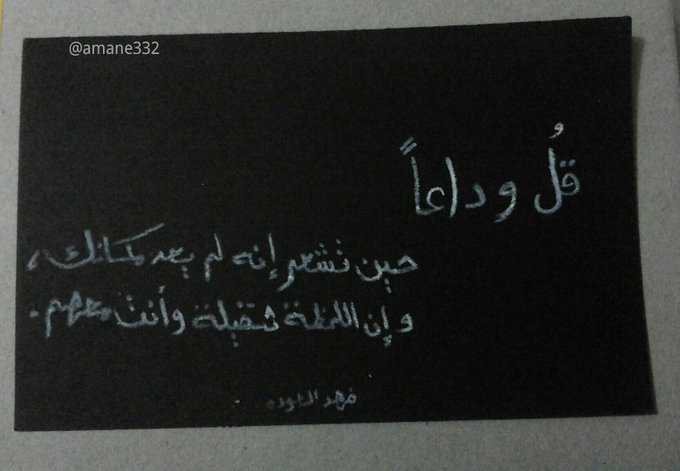 @amane332
قلُ وداعاً
حين تشعر إنه لم يعد مكانك،
وإن اللحظة ثقيلة وأنت معهم.
فهد العوده